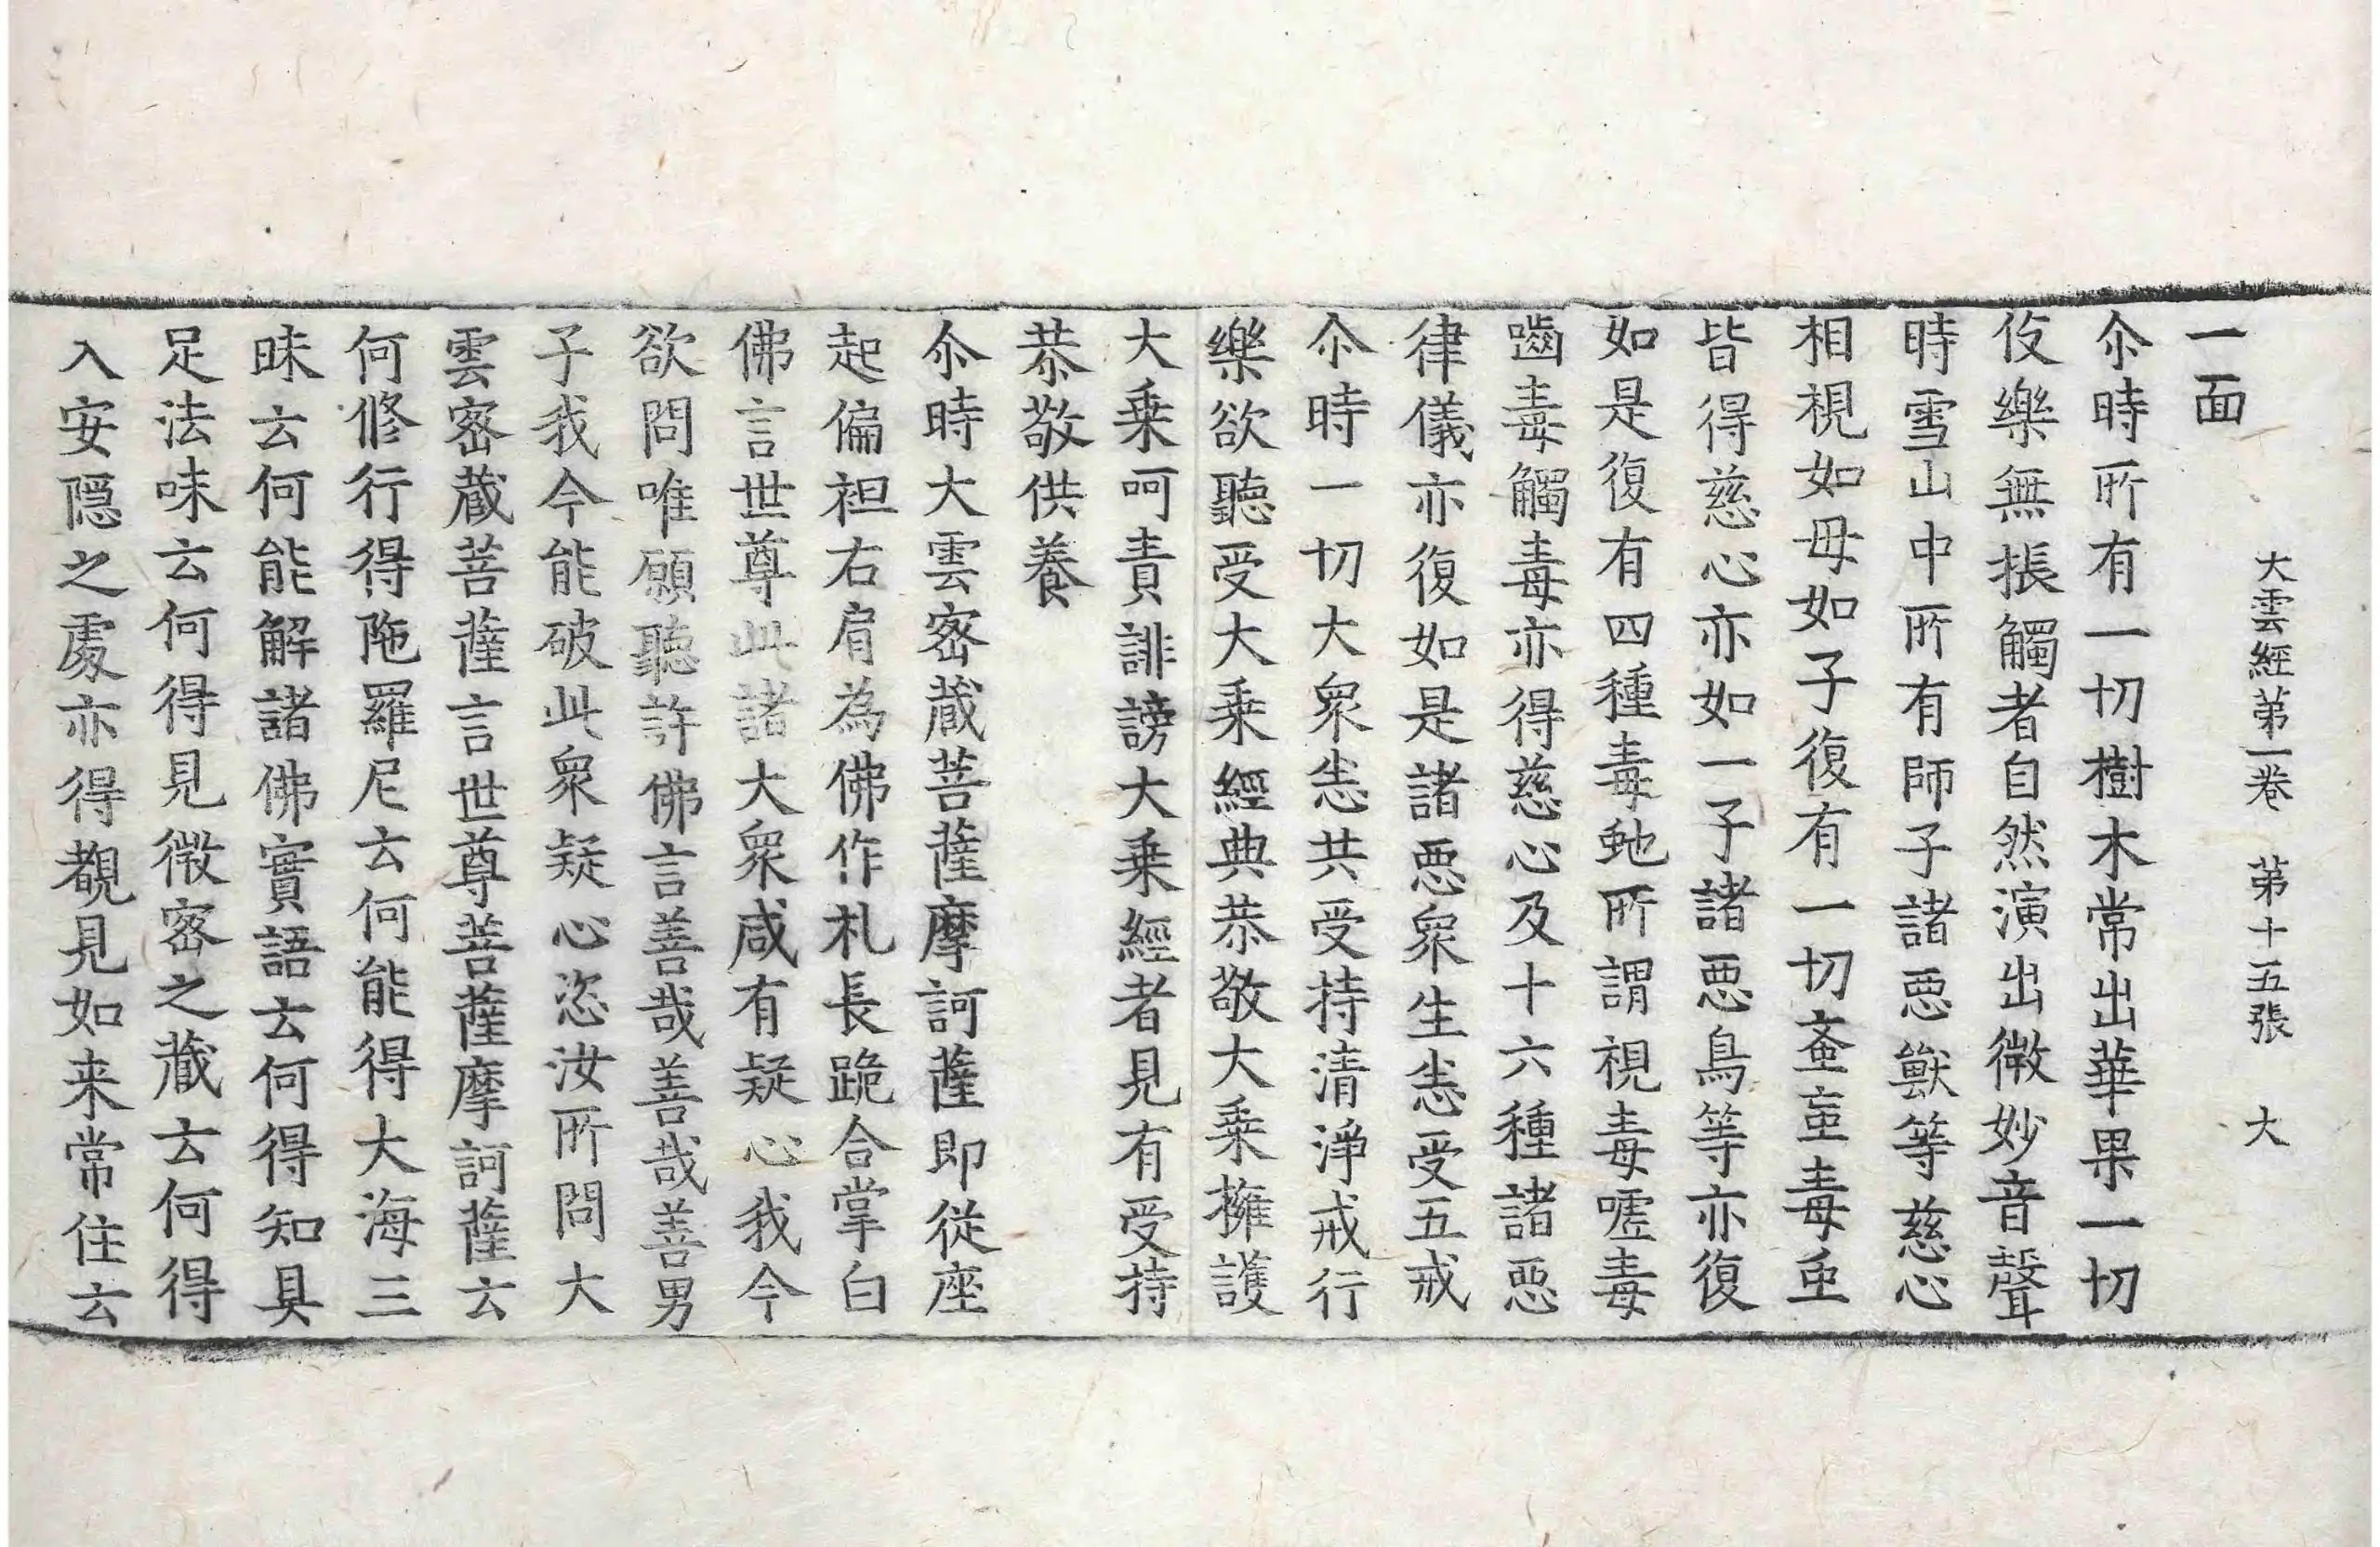 大雲經第一卷　第十五張　大
一面
尒時所有一切樹木常出華果一切
伎樂無掁觸者自然演出微妙音聲
時雪山中所有師子諸惡獸等慈心
相視如母如子復有一切蚉䖟毒虫
皆得慈心亦如一子諸惡鳥等亦復
如是復有四種毒虵所謂視毒噓毒
嚙毒觸毒亦得慈心及十六種諸惡
律儀亦復如是諸惡衆生悉受五戒
尒時一切大衆悉共受持清淨戒行
樂欲聽受大乗經典恭敬大乗擁護
大乗呵責誹謗大乗經者見有受持
恭敬供養
尒時大雲密蔵菩薩摩訶薩即從座
起偏袒右肩為佛作礼長跪合掌白
佛言世尊此諸大衆咸有疑心我今
欲問唯願聽許佛言善哉善哉善男
子我今能破此衆疑心恣汝所問大
雲密蔵菩薩言世尊菩薩摩訶薩云
何修行得陁羅尼云何能得大海三
昧云何能解諸佛實語云何得知具
足法味云何得見微密之蔵云何得
入安隠之處亦得覩見如来常住云